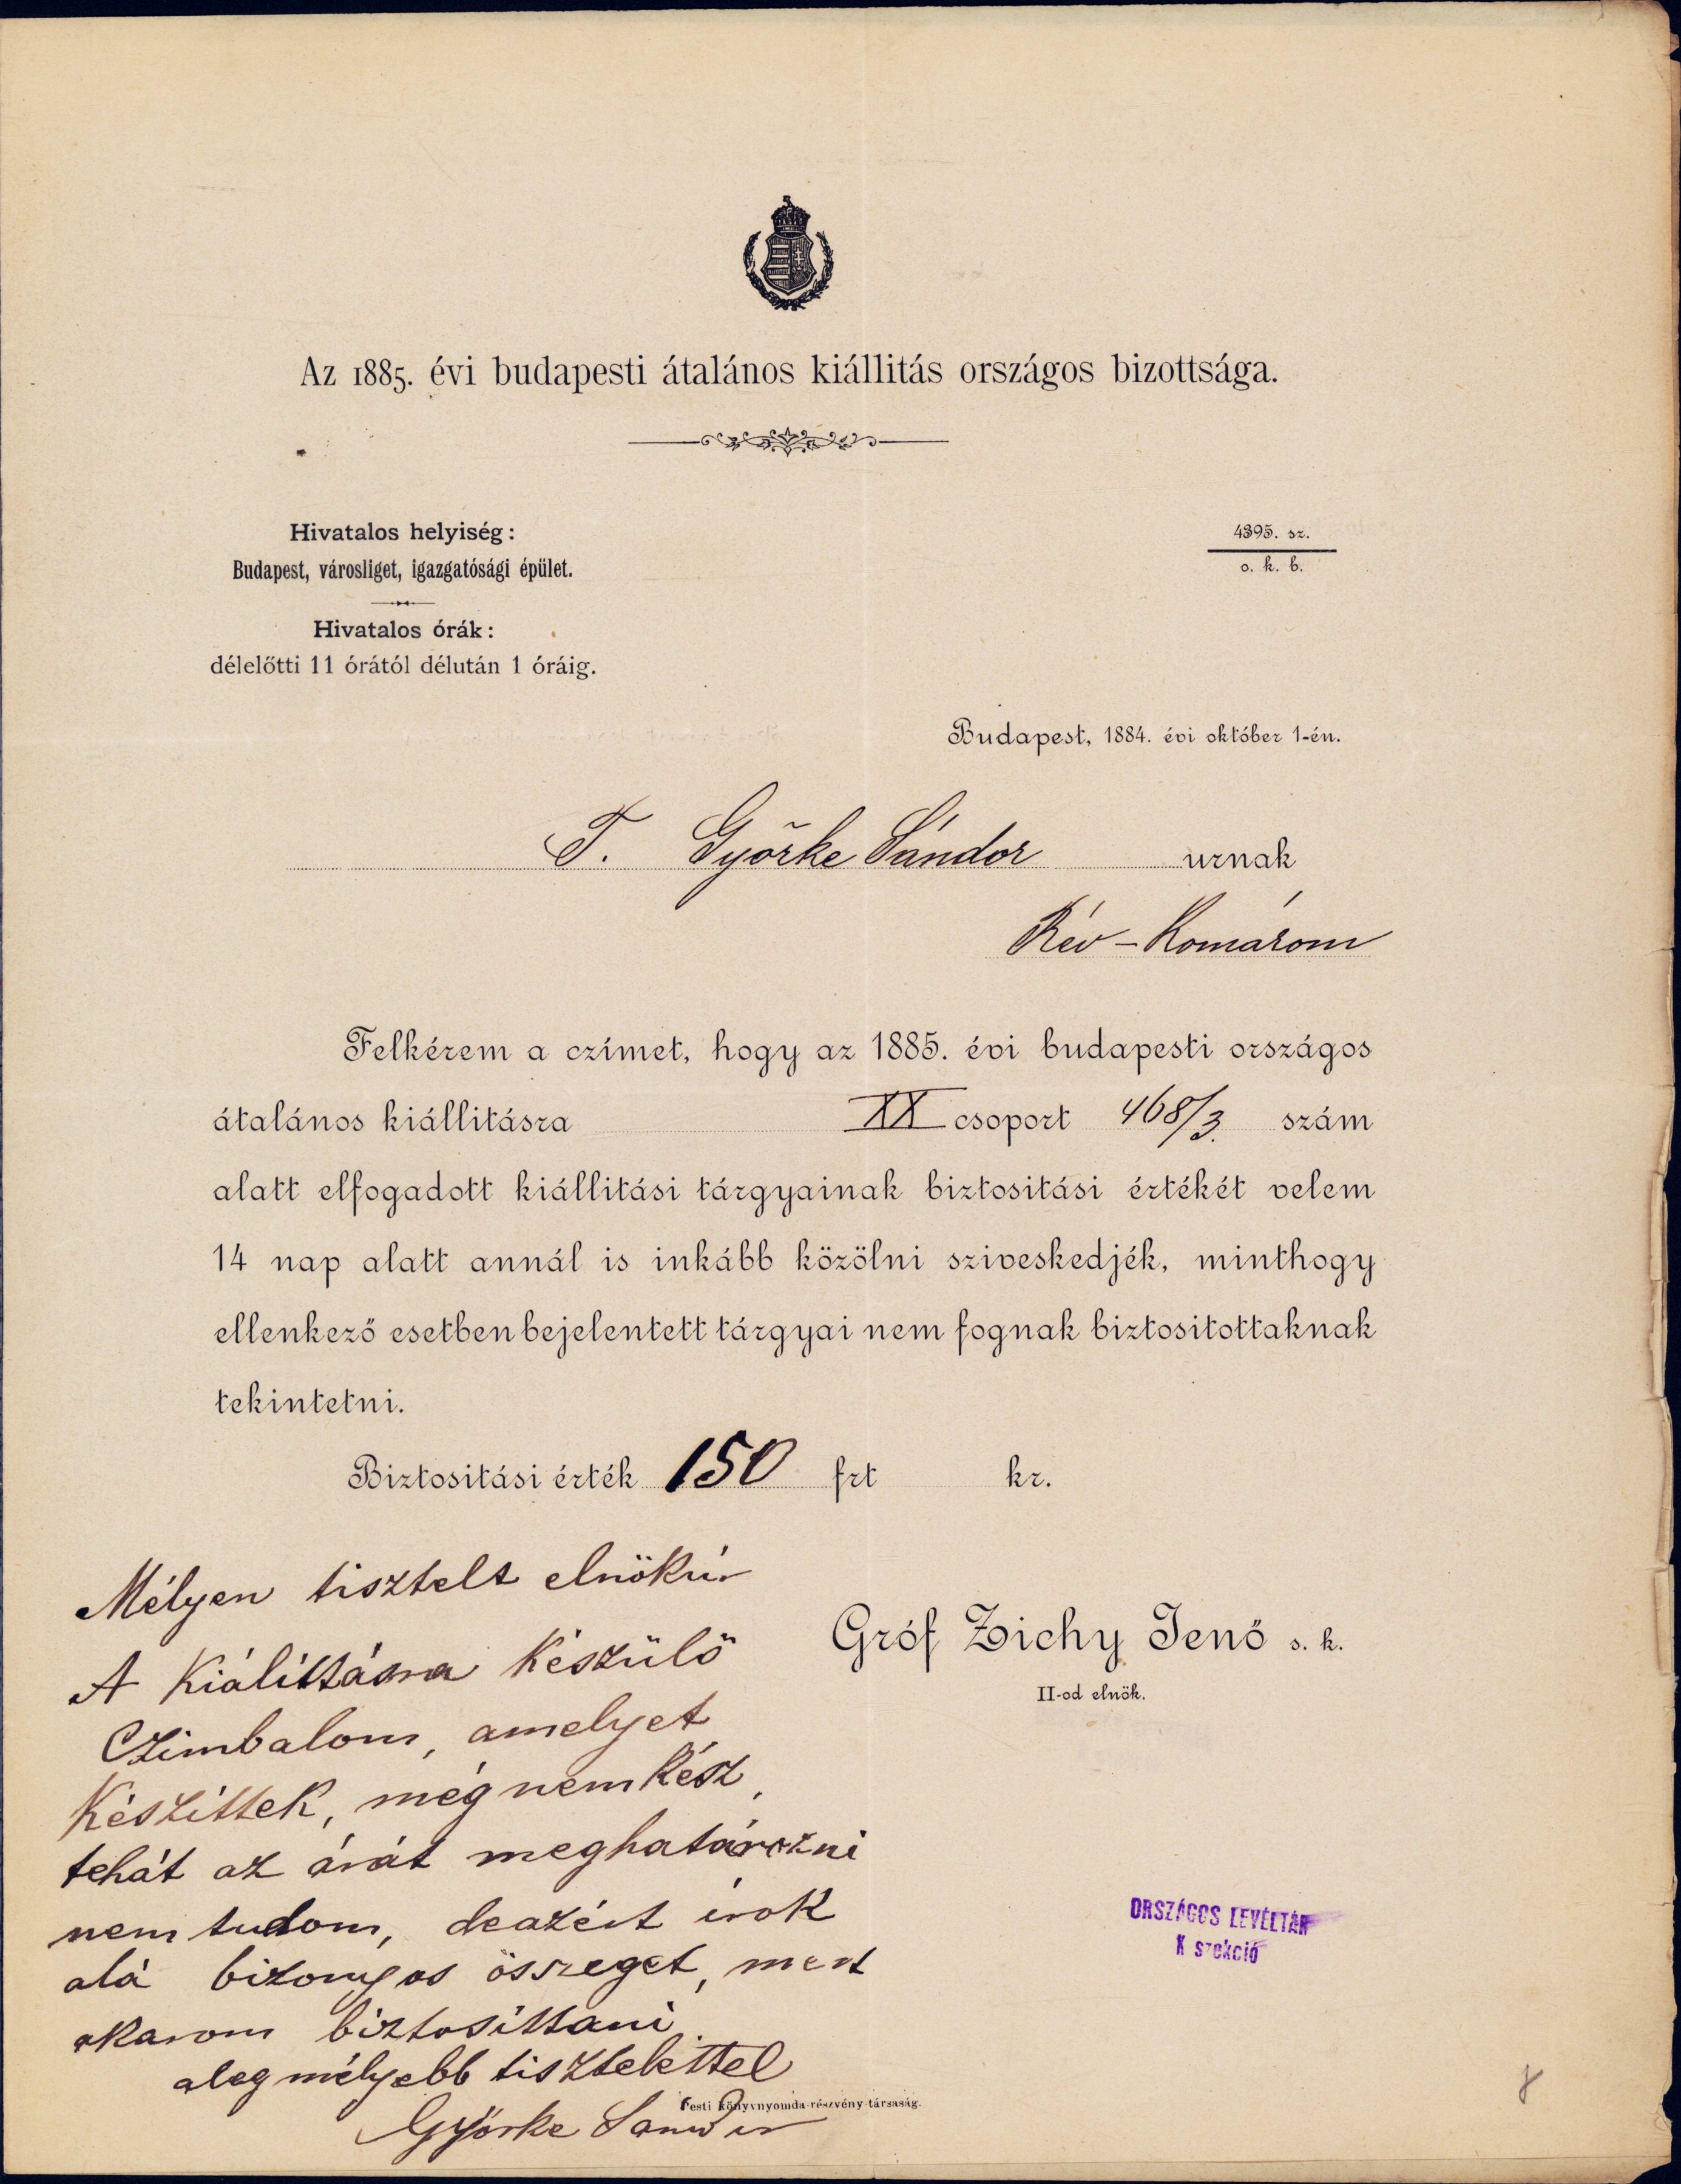 Az 1885. évi budapesti átalános kiállitás országos bizottsága.
Hivatalos helyiség:
Budapest, városliget, igazgatósági épület.
Hivatalos órák:
délelőtti 11 órától délután 1 óráig.
4395. sz.
o. k. b.
Budapest, 1884. évi október 1-én.
T. Győrke Sándor urnak
Rév-Komárom
Felkérem a czímet, hogy az 1885. évi budapesti országos
átalános kiállitásra XX csoport 468/3. szám
alatt elfogadott kiállitási tárgyainak biztositási értékét velem
14 nap alatt annál is inkább közölni sziveskedjék, minthogy
ellenkező esetben bejelentett tárgyai nem fognak biztositottaknak
tekintetni.
Biztositási érték 150 frt kr.
Gróf Zichy Jenő s. k.
II-od elnök.
Mélyen tisztelt elnökúr
A Kiálíttásra Készülő
Czimbalom, amelyet
Készíttek, még nem Kész,
tehát az árát meghatározni
nem tudom, deazért írok
alá bizonyos összeget, mert
akarom biztosíttani
aleg mélyebb tisztelettel
Győrke Sandor
Pesti könyvnyomda-részvény-társaság.
ORSZÁGOS LEVÉLTÁR
K szekció
8